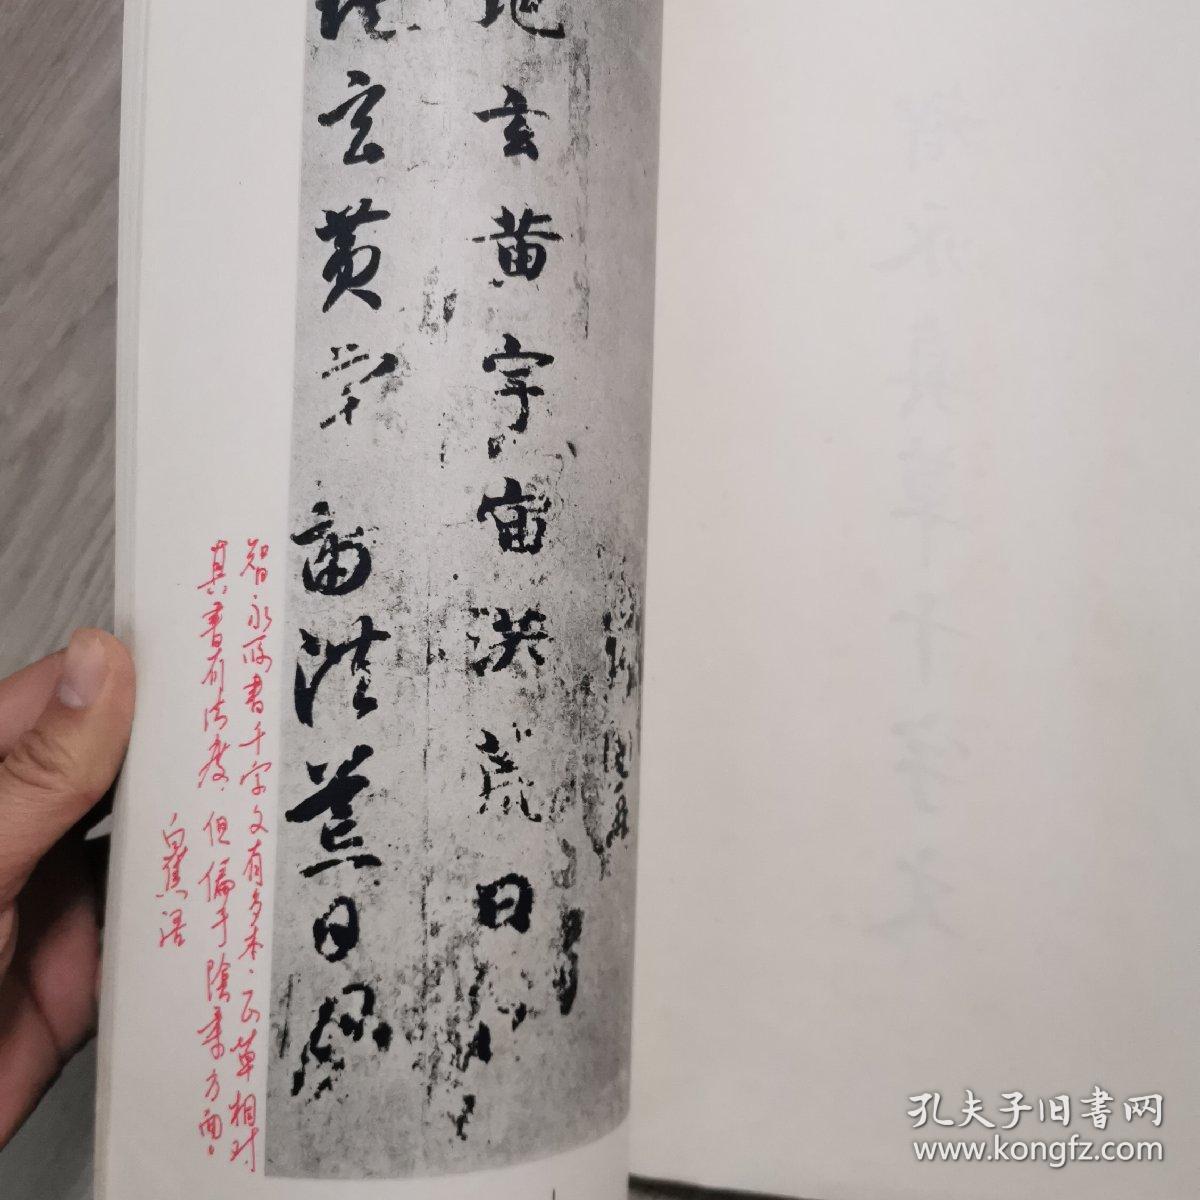 智永真草千字文
地玄黄宇宙洪荒日
地玄黄宇宙洪荒日
智永所書千字文有多本、正草相对
其書有法度、但偏于陰柔方面、
白蕉语
1
孔夫子旧書网
www.kongfz.com